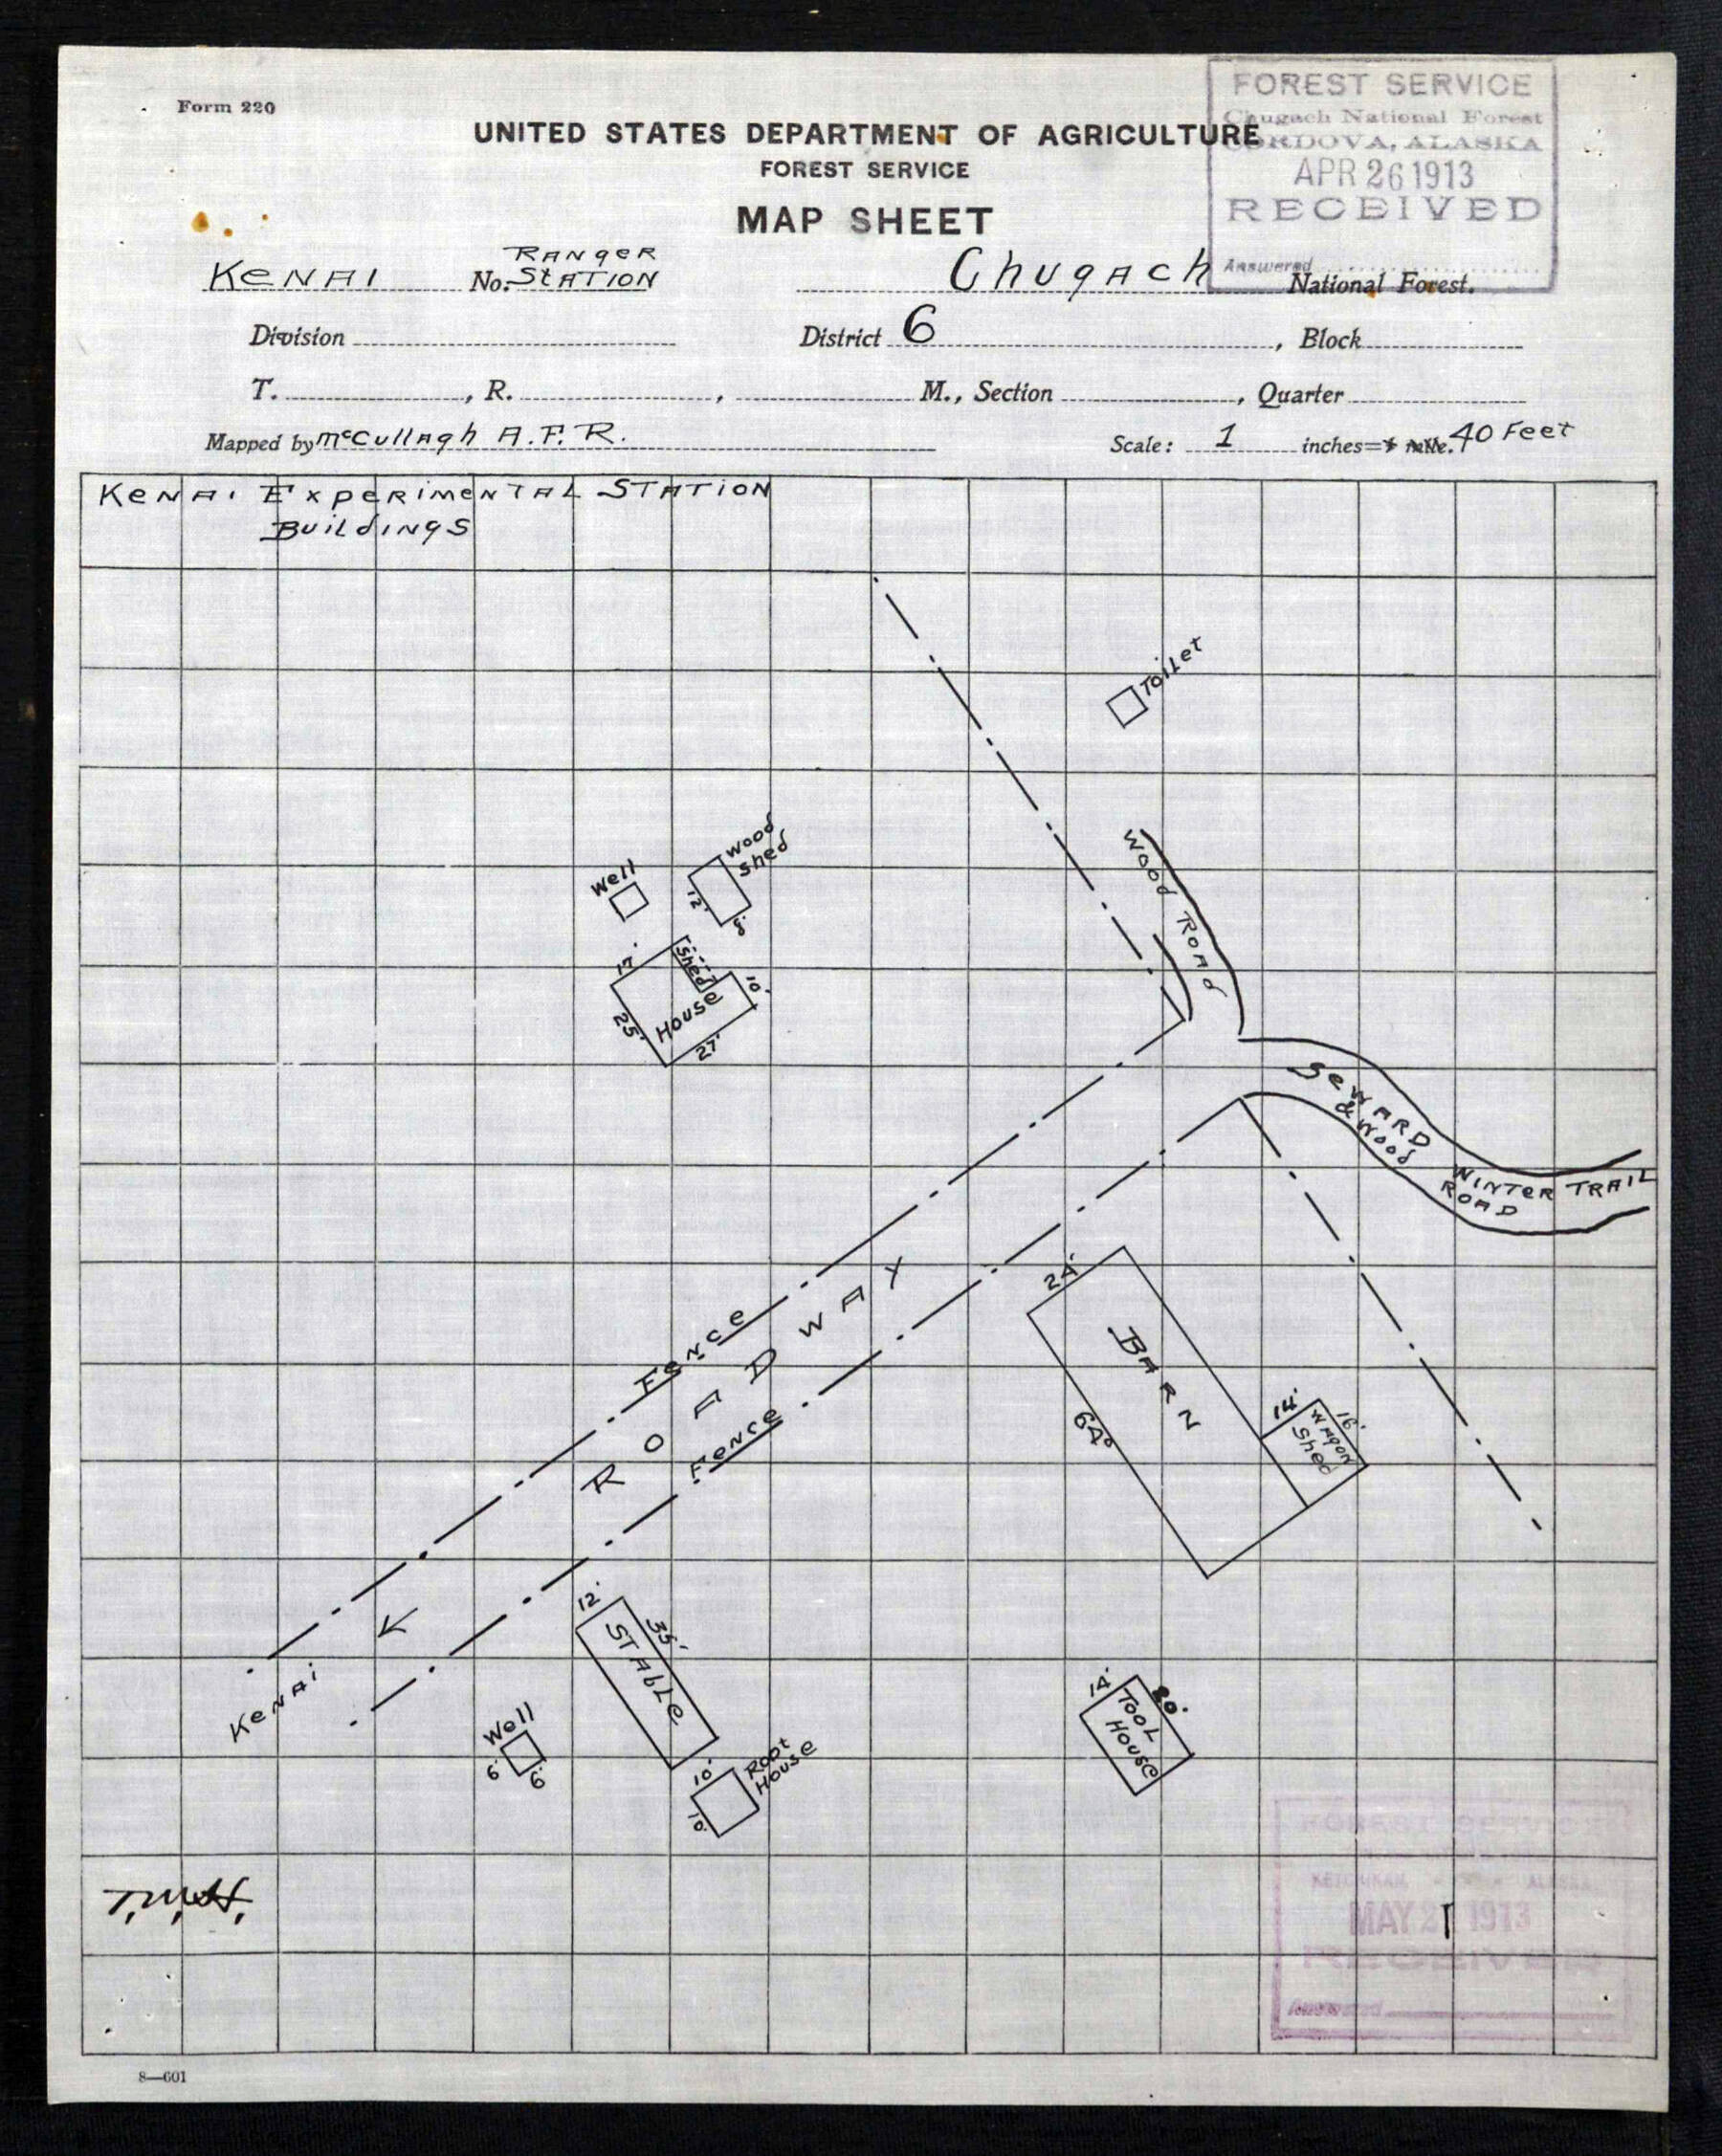 Form 220
UNITED STATES DEPARTMENT OF AGRICULTURE
FOREST SERVICE
MAP SHEET
FOREST SERVICE
Chugach National Forest
CORDOVA, ALASKA
APR 26 1913
RECEIVED
Answered
KENAI No. RANGER STATION Chugach National Forest.
Division District 6, Block
T. , R. , M., Section , Quarter
Mapped by McCullagh A.F.R. Scale: 1 inches= 1 mile. 40 Feet
KENAI EXPERIMENTAL STATION
BUILDINGS
Toilet
Wood Road
Wood
Shed
12'
8'
Well
17'
Shed
10'
House
25'
27'
SEWARD WINTER TRAIL
& Wood ROAD
Fence
ROADWAY
Fence
24'
BARN
64'
14'
16'
Wagon
Shed
Kenai
12'
35'
STABLE
Well
6'
6'
10'
10'
Root
House
14'
20'
TOOL
HOUSE
FOREST SERVICE
KETCHIKAN ALASKA
MAY 21 1913
RECEIVED
Answered
8—601